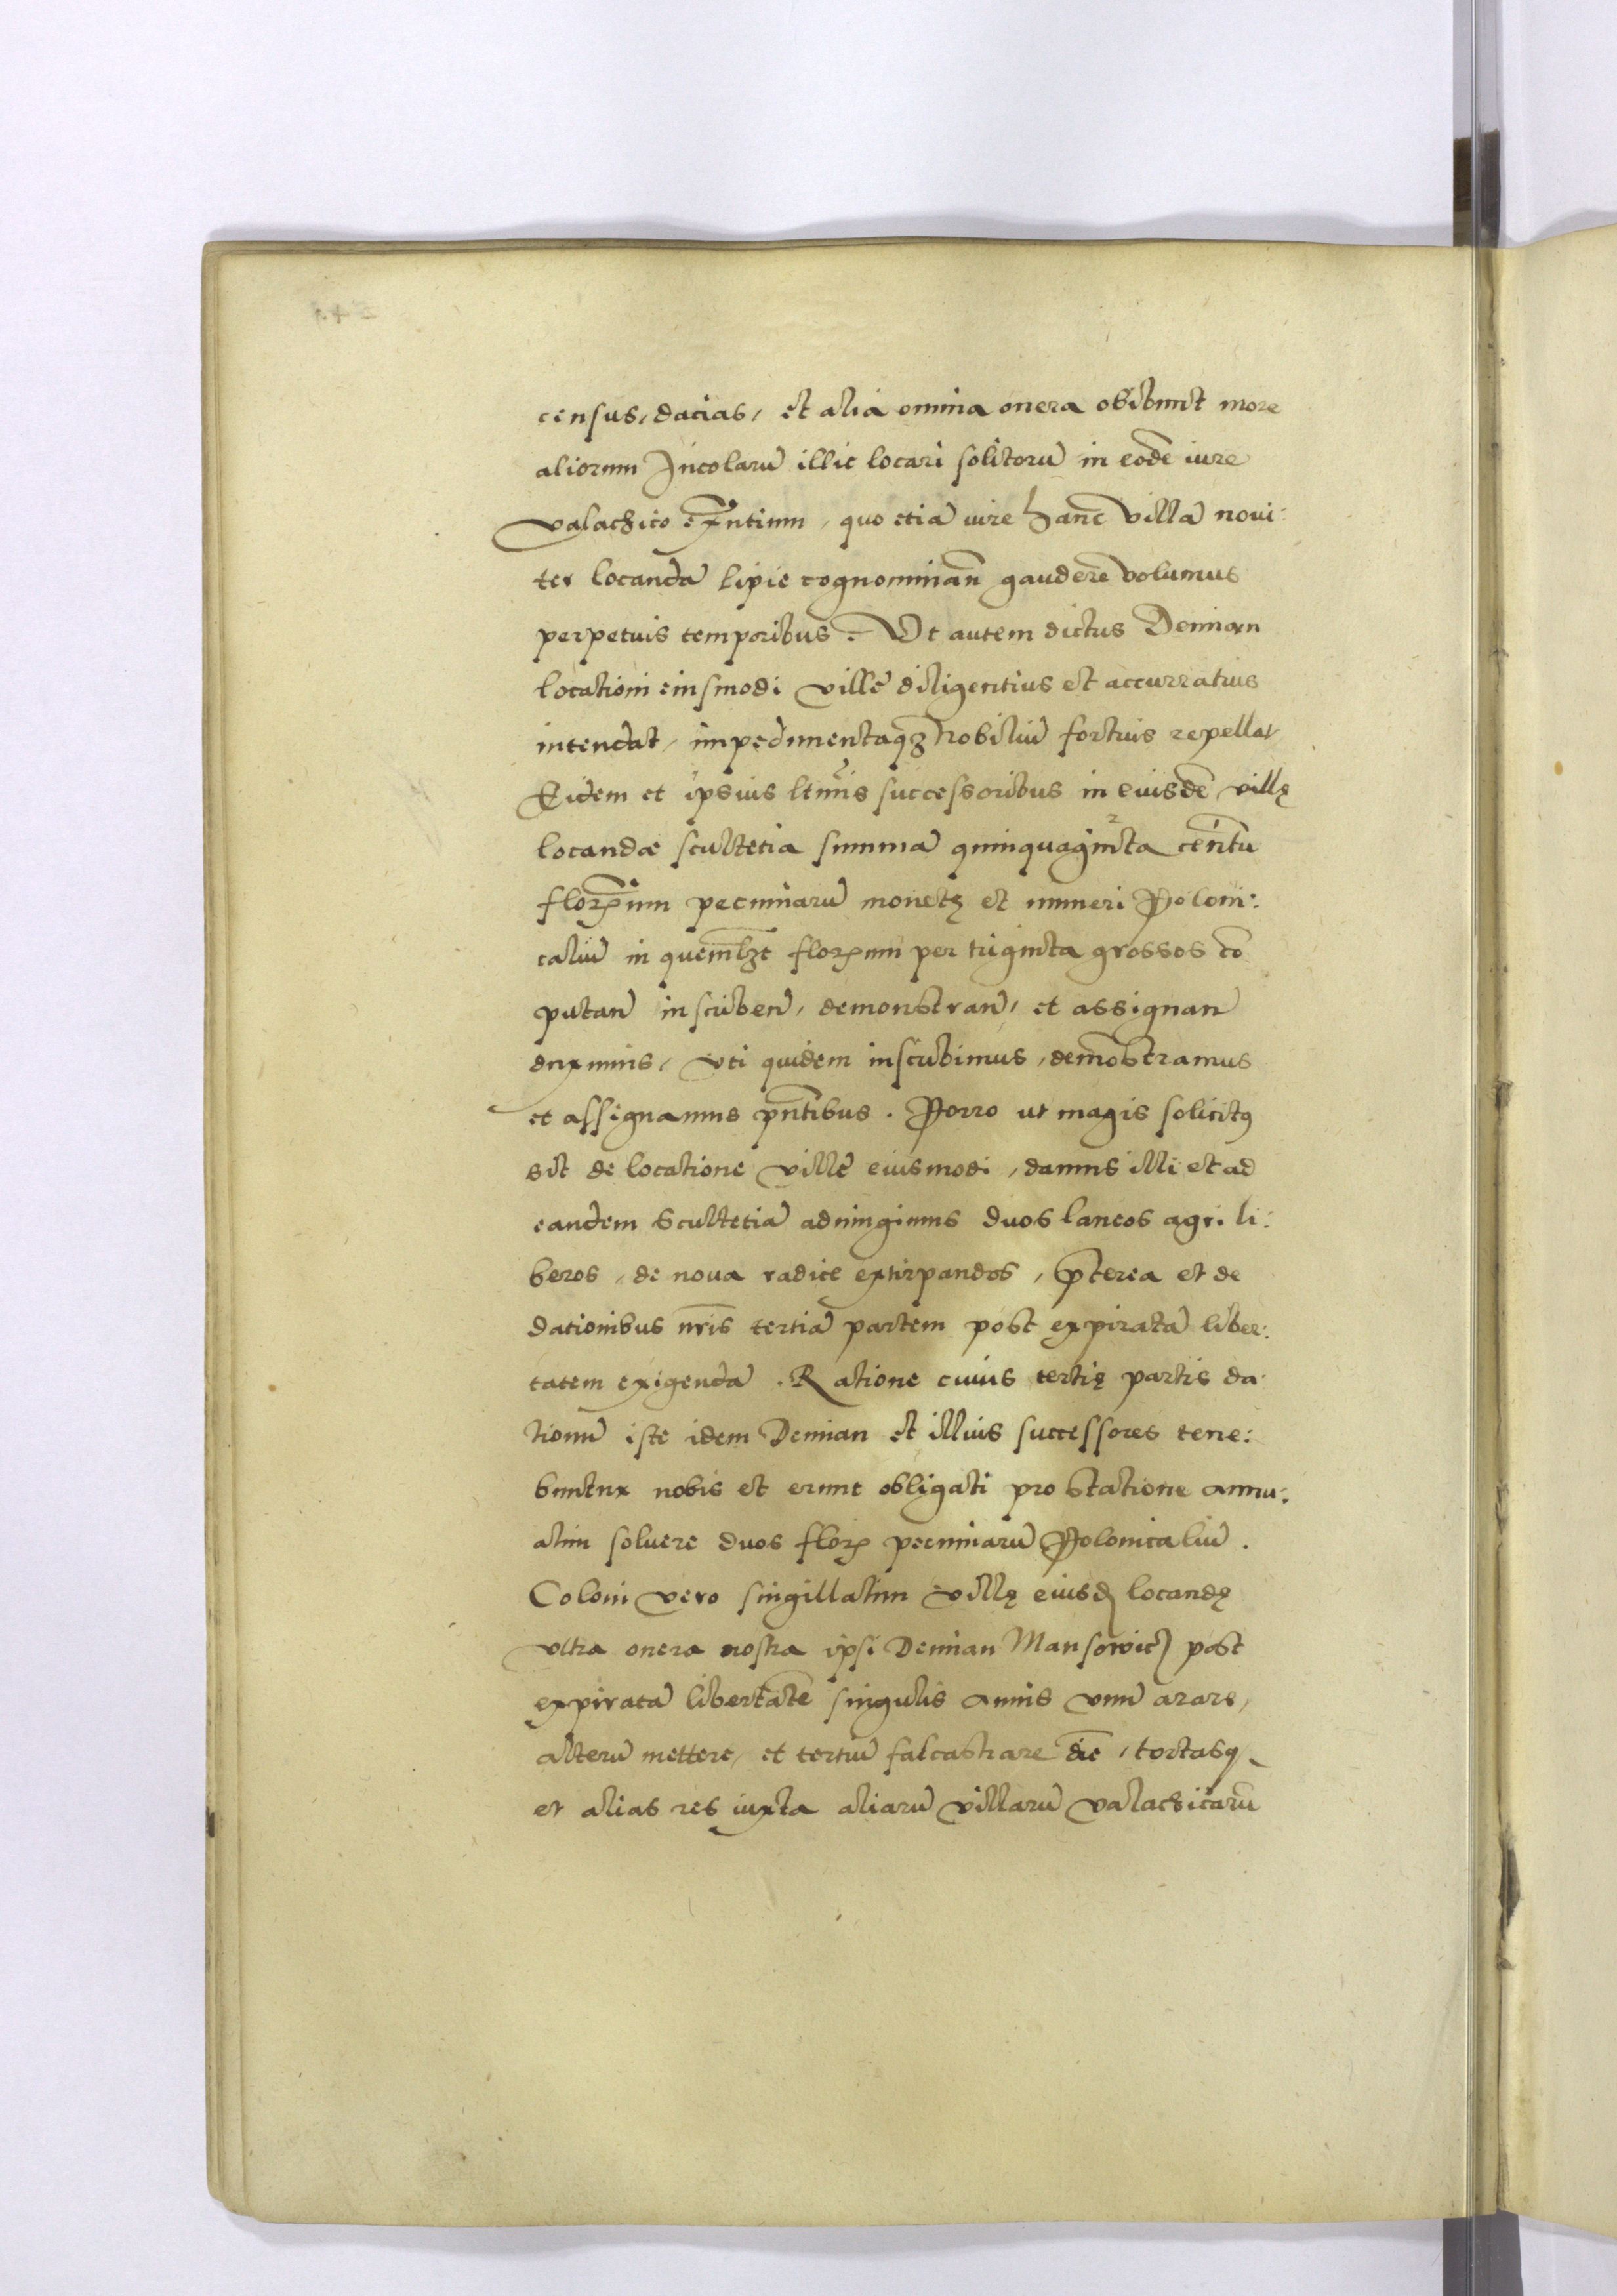 census, dacias, et alia omnia onera obibunt more
aliorum Incolarũ illic locari solitorũ in eodẽ iure
valachico exñtium, quo etiã iure hanc villã noui:
ter locandã Lipie cognominañ gaudere volumus
perpetuis temporibus. Vt autem dictus Demian
locationi eiusmodi villę diligentius et accurratius
intendat, impedimentaqȝ Nobiliũ fortius repellat,
Eidem et ipsius ltimis successoribus in eiusdẽ villę
locandæ scultetia summã quinquaginta centũ
florenum pecuniarũ monetę et numeri Poloni:
caliũ in quemlȝt florenum per triginta grossos cõ
putañ inscribeñ, demonstrañ, et assignañ
duximus, vti quidem inscribimus, demonstramus
et assignamus pñtibus. Porro ut magis solicitꝰ
sit de locatione villę eiusmodi, damus illi et ad
eandem Scultetiã adiungimus duos laneos agri li:
beros, de noua radice extirpandos, p̃terea et de
dationibus nr̃is tertiã partem post expiratã liber:
tatem exigendã. Ratione cuius tertię partis da:
tionũ iste idem Demian et illius successores tene:
buntur nobis et erunt obligati pro statione annu:
atim soluere duos flor. pecuniarũ Polonicaliũ.
Coloni vero singillatim villę eiusd. locandę
vltra onera nostra ipsi Demian Mansowic) post
expiratã libertatẽ singulis annis vnũ arare,
alterũ mettere, et tertiũ falcastrare diẽ, tortasq,
et alias res iuxta aliarũ villarũ valachicarũ